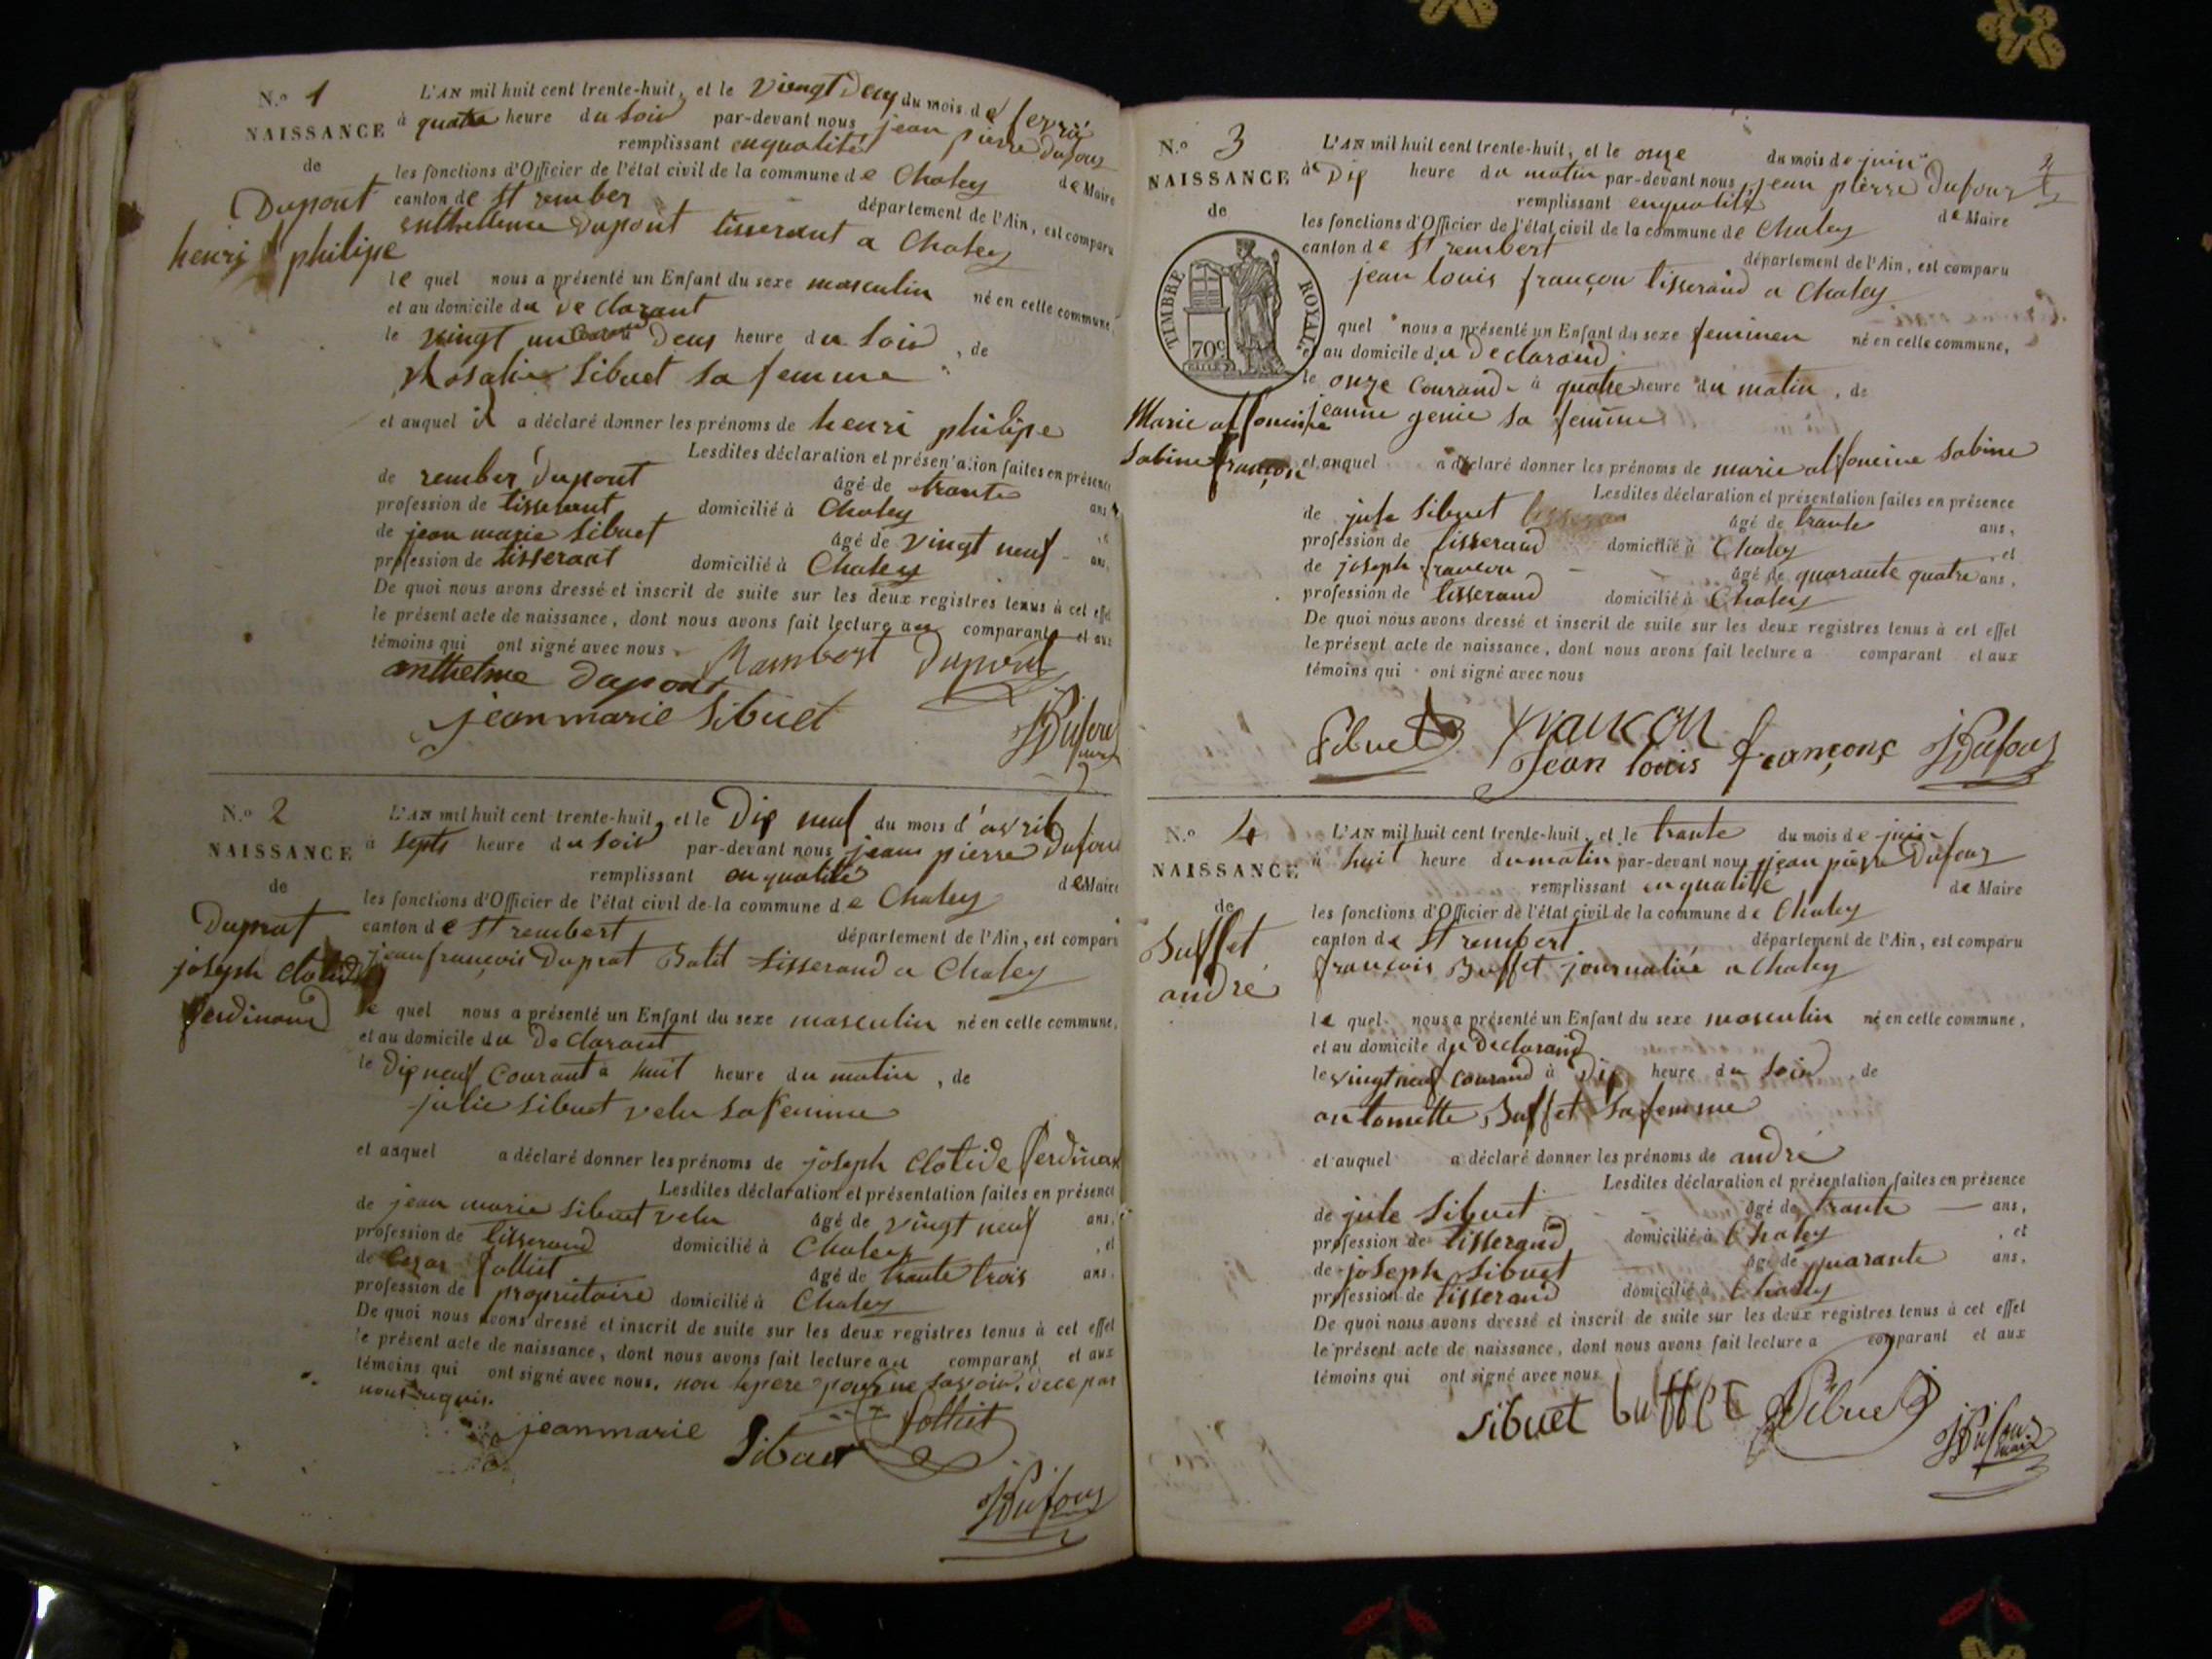 N.° 1
NAISSANCE
de
Dupont
henri philipe
L'AN mil huit cent trente-huit, et le vingt Deux du mois de fevrié
à quatre heure du soir par-devant nous jean pierre Dufour
remplissant enqualité de Maire
les fonctions d'Officier de l'état civil de la commune de Chaley
canton de St rember département de l'Ain, est comparu
Dupont tisserant a Chaley
le quel nous a présenté un Enfant du sexe masculin né en cette commune,
et au domicile du De clarant
le vingt un courant Deux heure du soir, de
Rosalie Sibuet sa femme
et auquel il a déclaré donner les prénoms de henri philipe
Lesdites déclaration et présentation faites en présence
de rember Dupont âgé de trante ans,
profession de tisserant domicilié à Chaley
de jean marie Sibuet âgé de vingt neuf ans,
profession de tisserant domicilié à Chaley
De quoi nous avons dressé et inscrit de suite sur les deux registres tenus à cet effet
le présent acte de naissance, dont nous avons fait lecture aux comparants et aux
témoins qui ont signé avec nous.
anthelme Dupont Rambert Dupont
jeanmarie Sibuet
JPDufour
maire
N.° 2
NAISSANCE
de
Duprat
joseph Clotide
ferdinand
L'AN mil huit cent trente-huit, et le Dix neuf du mois d'avril
à septs heure du soir par-devant nous jean pierre Dufour
remplissant en qualité de Maire
les fonctions d'Officier de l'état civil de la commune de Chaley
canton de St rembert département de l'Ain, est comparu
jean françois Duprat tisserand a Chaley
le quel nous a présenté un Enfant du sexe masculin né en cette commune,
et au domicile du De clarant
le Dix neuf Courant à huit heure du matin, de
julie Sibuet velu sa femme
et auquel a déclaré donner les prénoms de joseph Clotide ferdinand
Lesdites déclaration et présentation faites en présence
de jean marie Sibuet velu âgé de vingt neuf ans,
profession de tisserand domicilié à Chaley, et
de Cezar folliet âgé de trante trois ans,
profession de proprietaire domicilié à Chaley
De quoi nous avons dressé et inscrit de suite sur les deux registres tenus à cet effet
le présent acte de naissance, dont nous avons fait lecture au comparant et aux
témoins qui ont signé avec nous, non le pere pour ne savoir, de ce par
nous requis.
jeanmarie Sibuet folliet
JPDufour
N.° 3
2
NAISSANCE
de
TIMBRE ROYAL
70c
Marie alfoncine
Sabine françon
L'AN mil huit cent trente-huit, et le onze du mois de juin
à Dix heure du matin par-devant nous, jean pierre Dufour
remplissant enqualité de Maire
les fonctions d'Officier de l'état civil de la commune de Chaley
canton de St rembert département de l'Ain, est comparu
jean louis françon tisserand a Chaley
quel nous a présenté un Enfant du sexe feminen né en cette commune,
et au domicile du Declarand
le onze Courand à quatre heure du matin, de
jeanne genie sa femme
et auquel a déclaré donner les prénoms de marie alfoncine Sabine
Lesdites déclaration et présentation faites en présence
de jule Sibuet âgé de trante ans,
profession de tisserand domicilié à Chaley et
de joseph francon âgé de quarante quatre ans,
profession de tisserand domicilié à Chaley
De quoi nous avons dressé et inscrit de suite sur les deux registres tenus à cet effet
le présent acte de naissance, dont nous avons fait lecture a comparant et aux
témoins qui ont signé avec nous
Sibuet francon
Jean louis françons JPDufour
N.° 4
NAISSANCE
de
Buffet
andré
L'AN mil huit cent trente-huit, et le trante du mois de juin
à huit heure du matin par-devant nous jean pierre Dufour
remplissant en qualité de Maire
les fonctions d'Officier de l'état civil de la commune de Chaley
canton de St rembert département de l'Ain, est comparu
françois Buffet journalié a Chaley
le quel nous a présenté un Enfant du sexe masculin né en cette commune,
et au domicile du Declarand
le vingt neuf Courand à Dix heure du soir, de
antoinette Buffet sa femme
et auquel a déclaré donner les prénoms de andré
Lesdites déclaration et présentation faites en présence
de jule Sibuet âgé de trante ans,
profession de tisserand domicilié à Chaley, et
de joseph Sibuet âgé de quarante ans,
profession de tisserand domicilié à Chaley
De quoi nous avons dressé et inscrit de suite sur les deux registres tenus à cet effet
le présent acte de naissance, dont nous avons fait lecture a comparant et aux
témoins qui ont signé avec nous
Sibuet buffet Sibuet
JPDufour
maire